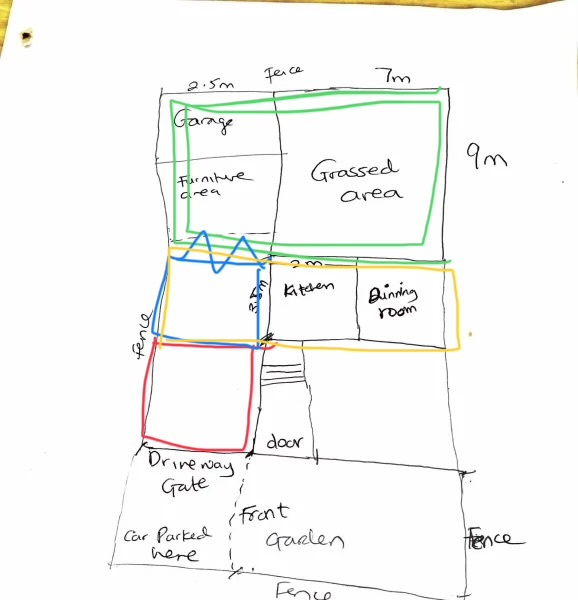 2.5m
Fence
7m
Garage
9m
Furniture
area
Grassed
area
2m
Kitchen
Dinning
room
Fence
door
Driveway
Gate
Front
Garden
Car Parked
here
Fence
Fence